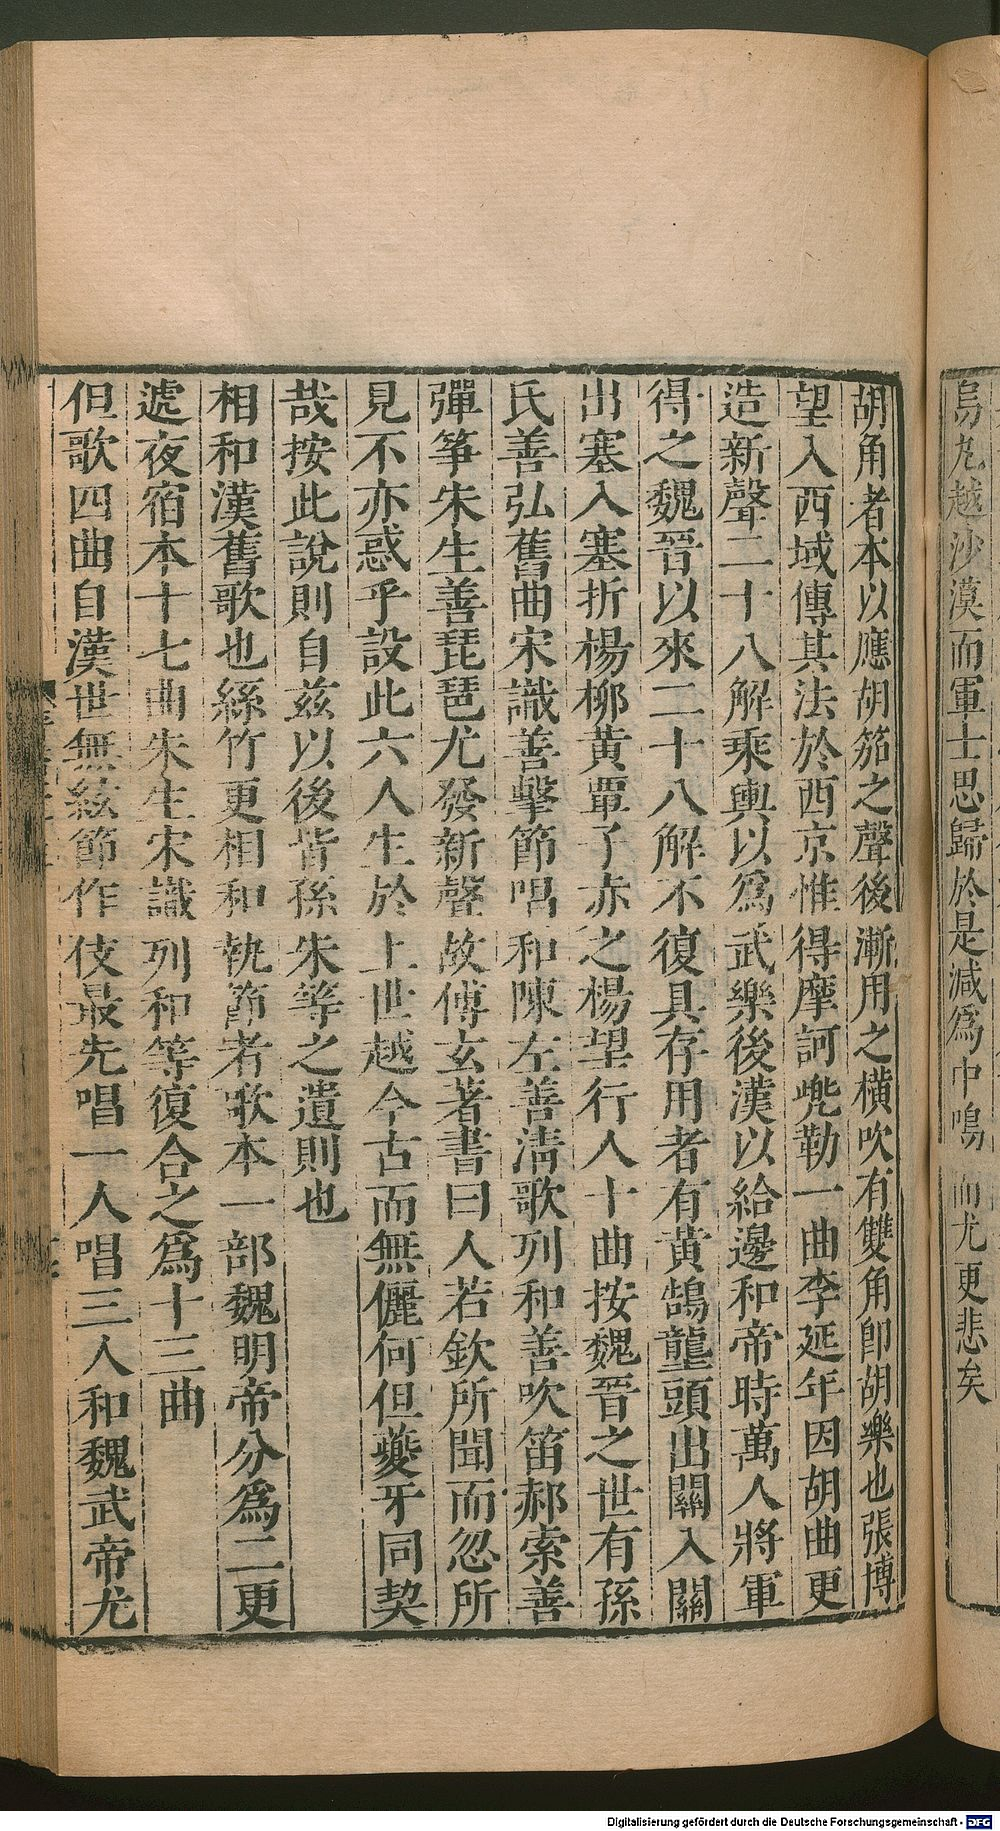 烏丸越沙漠而軍士思歸於是減爲中鳴而尤更悲矣
胡角者本以應胡笳之聲後漸用之橫吹有雙角卽胡樂也張博
望入西域傳其法於西京惟得摩訶兠勒一曲李延年因胡曲更
造新聲二十八解乘輿以爲武樂後漢以給邊和帝時萬人將軍
得之魏晉以來二十八解不復具存用者有黃鵠壟頭出關入關
出塞入塞折楊柳黃覃子赤之楊望行人十曲按魏晉之世有孫
氏善弘舊曲宋識善擊節唱和陳左善淸歌列和善吹笛郝索善
彈箏朱生善琵琶尤發新聲故傅玄著書曰人若欽所聞而忽所
見不亦惑乎設此六人生於上世越今古而無儷何但夔牙同契
哉按此說則自兹以後皆孫朱等之遺則也
相和漢舊歌也絲竹更相和執節者歌本一部魏明帝分爲二更
遞夜宿本十七曲朱生宋識列和等復合之爲十三曲
但歌四曲自漢世無絃節作伎最先唱一人唱三人和魏武帝尤
Digitalisierung gefördert durch die Deutsche Forschungsgemeinschaft - DFG